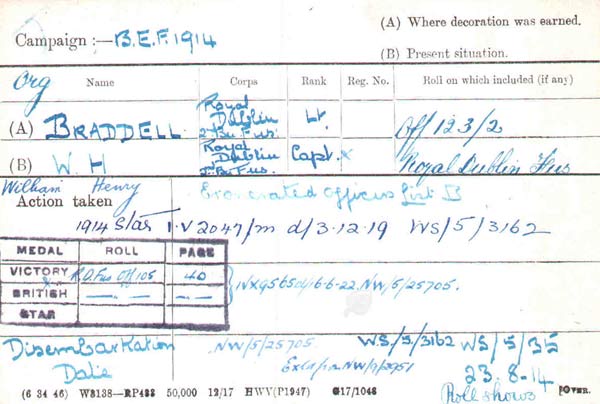 Campaign :— B.E.F. 1914
(A) Where decoration was earned.
(B) Present situation.
Org
Name Corps Rank Reg. No. Roll on which included (if any)
(A) BRADDELL Royal Dublin Fus. Lt. Off 123/2
(B) W. H Royal Dublin Fus. Capt. x Royal Dublin Fus
William Henry
Action taken
Officers List B
1914 Star I.V 2047/m d/3.12.19 WS/5/3162
MEDAL ROLL PAGE
VICTORY R.D.Fus Off 105 40
BRITISH —"— —"—
STAR
6-6-22. NW/5/25705.
Disembarkation NW/5/25705 WS/5/3162 WS/5/35
Date 23-8-14
(6 34 46) W8138—RP488 50,000 12/17 HWV(P1947) G17/1048 Roll shows [OVER.